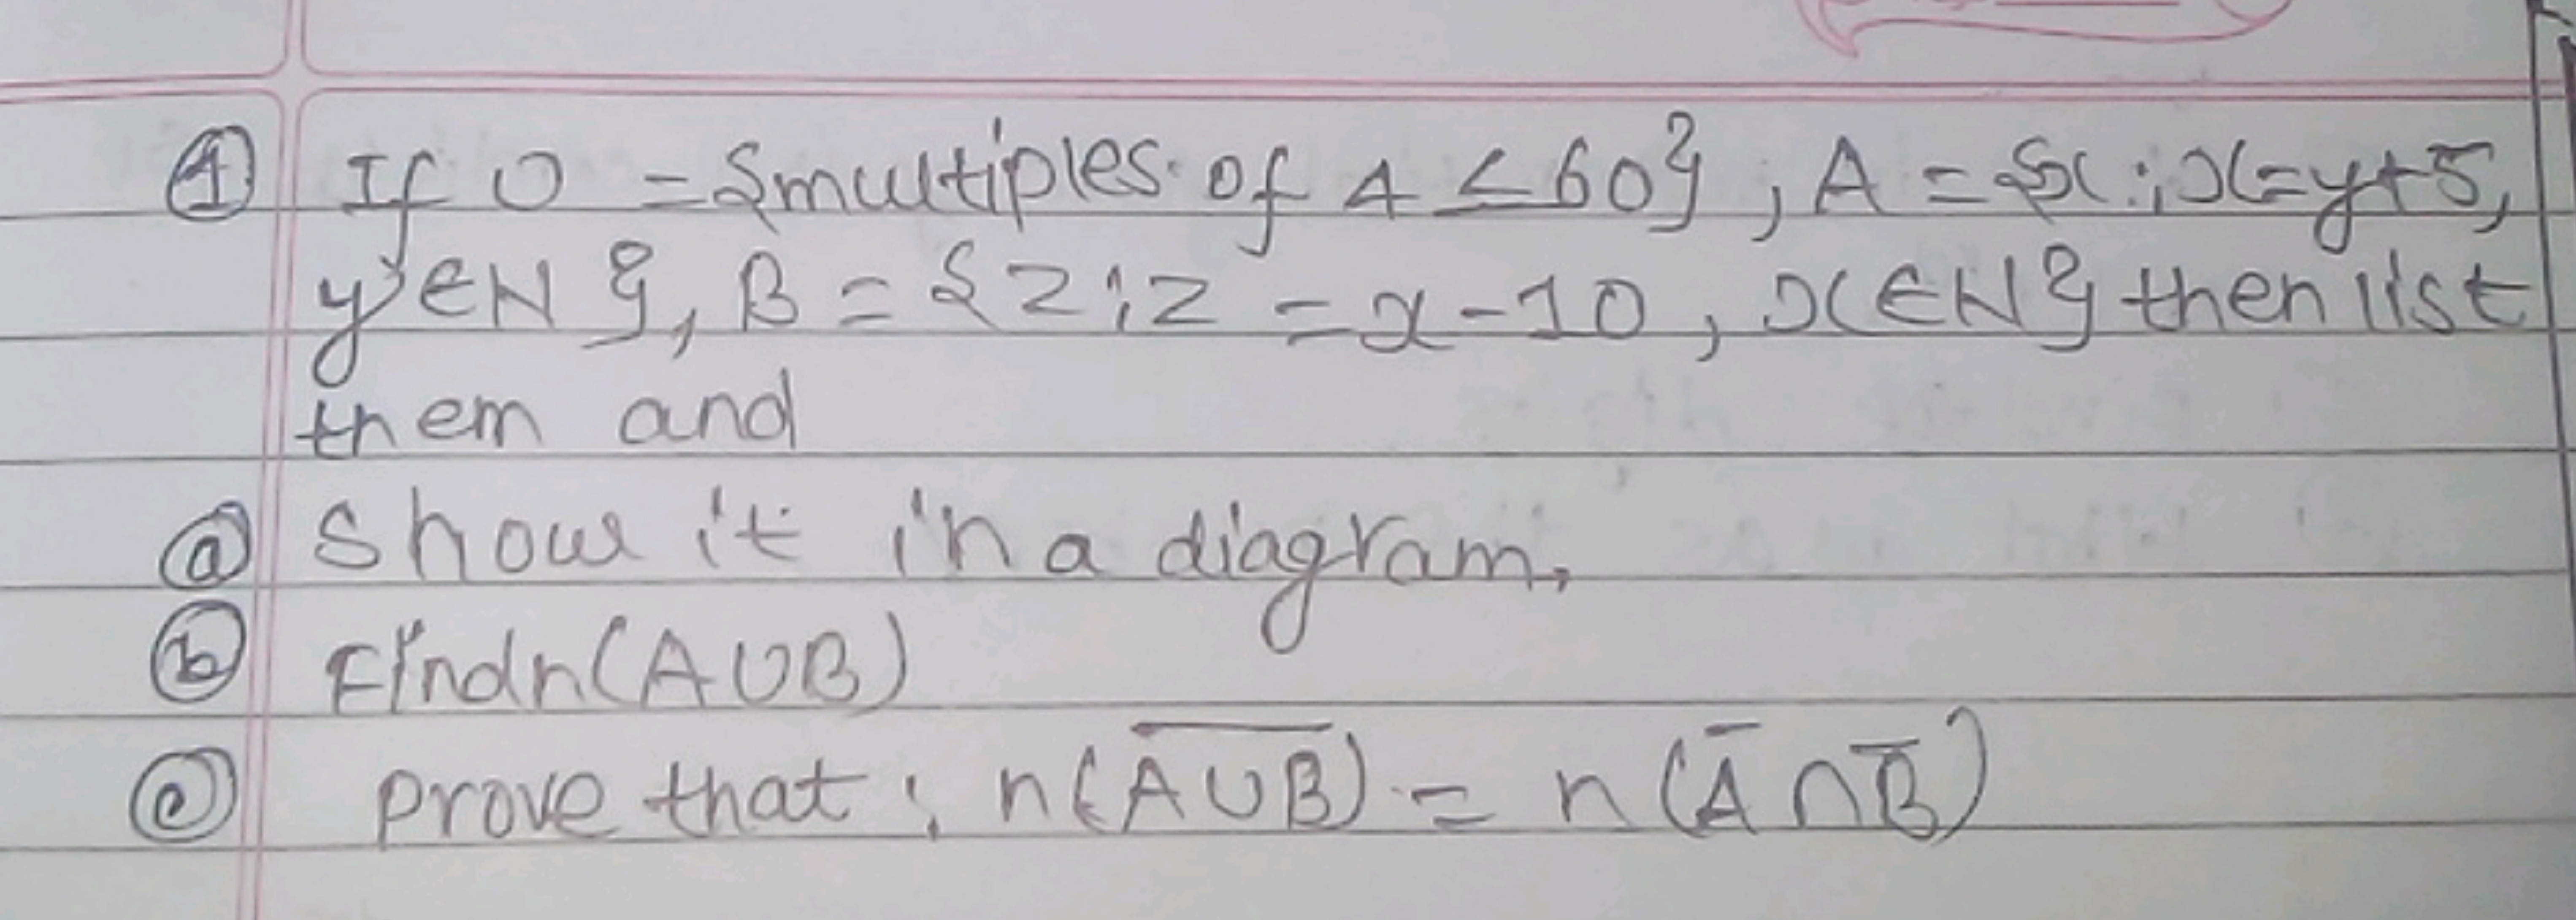 ① If U = {multiples of 4 ≤ 60}, A = {x : x = y + 5,
y ∈ N}, B = {z : z = x - 10, x ∈ N} then list
them and
ⓐ Show it in a diagram,
ⓑ Find n(A∪B)
ⓒ prove that : n(A̅∪̅B̅) = n(A̅ ∩ B̅)